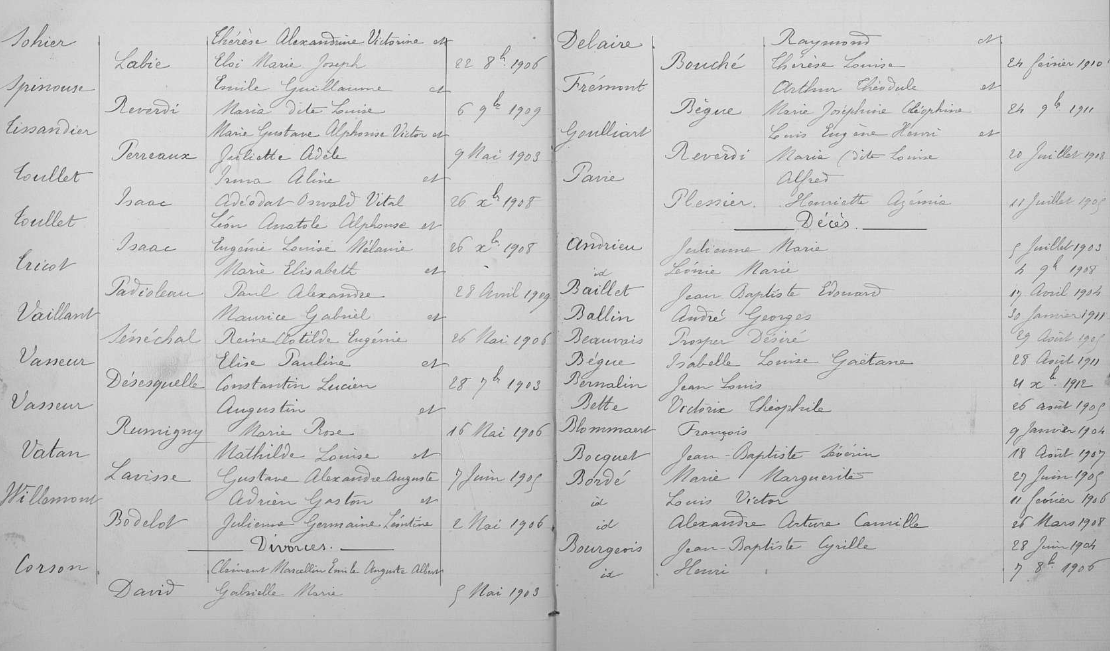 Sohier Thérèse Alexandrine Victorine et
Labie Eloi Marie Joseph 22 8b 1906
Spinouse Emile Guillaume et
Reverdi Maria dite Louise 6 9b 1909
Tissandier Marie Gustave Alphonse Victor et
Perreaux Juliette Adèle 9 Mai 1903
Toullet Irma Aline et
Isaac Adéodat Oswald Vital 26 xb 1908
Toullet Léon Anatole Alphonse et
Isaac Eugénie Louise Mélanie 26 xb 1908
Tricot Marie Elisabeth et
Padioleau Paul Alexandre 28 Avril 1909
Vaillant Maurice Gabriel et
Sénéchal Reine Clotilde Eugénie 26 Mai 1906
Vasseur Elise Pauline et
Désesquelle Constantin Lucien 28 7b 1903
Vasseur Augustin et
Rumigny Marie Rose 16 Mai 1906
Vatan Mathilde Louise et
Lavisse Gustave Alexandre Auguste 7 Juin 1905
Willemont Adrien Gaston et
Bodelot Julienne Germaine Léontine 2 Mai 1906
Divorces.
Corson Clément Marcellin Emile Auguste Albert
David Gabrielle Marie 5 Mai 1903
Delaire Raymond et
Bouché Thérèse Louise 24 février 1910
Frémont Arthur Théodule et
Bègue Marie Joséphine Cléophine 24 9b 1911
Goulliart Louis Eugène Henri et
Reverdi Maria (dite Louise 20 Juillet
Alfred
Plessier. Henriette Azémia 11 Juillet 1905
Décès.
Andrieu Julienne Marie 5 Juillet 1903
id Léonie Marie 4 9b 1908
Baillet Jean Baptiste Edouard 17 Avril 1904
Ballin André Georges 30 Janvier 1911
Beauvais Prosper Désiré 29 Août 1905
Bégue Isabelle Louise Gaëtane 28 Août 1911
Bernalin Jean Louis xb 1912
Bette Victorix Théophile 26 août 1905
Blommaert François 9 Janvier 1904
Bocquet Jean-Baptiste Séverin 18 Août 1907
Bordé Marie Marguerite 27 Juin 1905
id Louis Victor 11 février 1906
id Alexandre Arture Camille 26 Mars 1908
Bourgeois Jean-Baptiste Cyrille 28 Juin 1904
id Henri 7 8b 1906